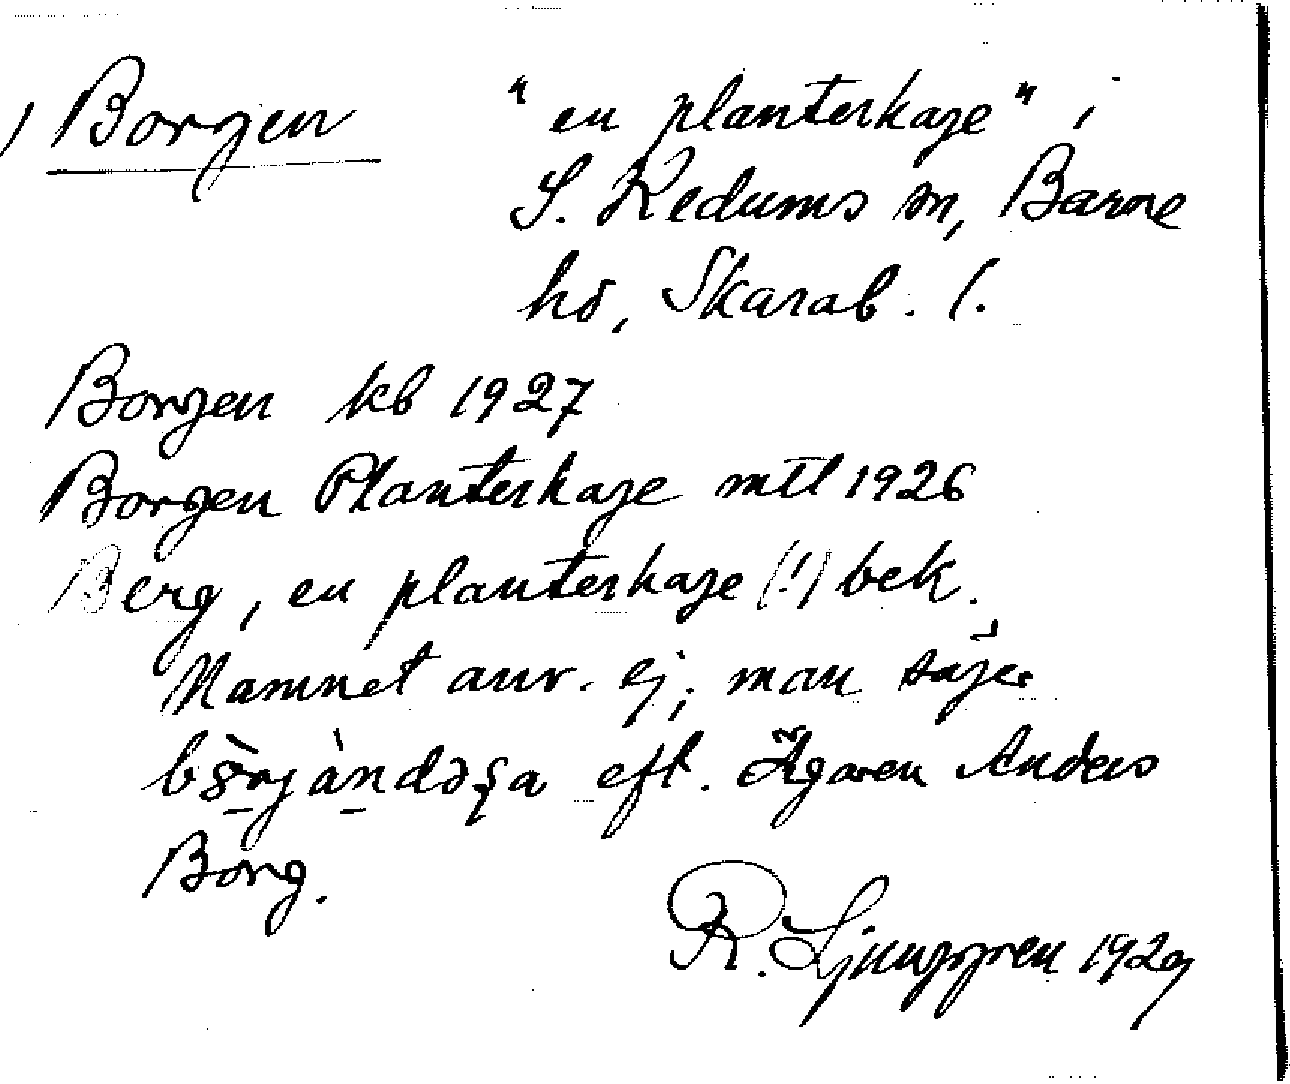 Borgen "en planterkage" i
S. Kedums sn, Barne
hd, Skarab. l.
Borgen kb 1927
Borgen Planterkage mtl 1926
Berg, en planterkage (!) bek.
Namnet anv. ej; man säger
eft. Ägaren Anders
Borg.
R. Ljunggren 1929